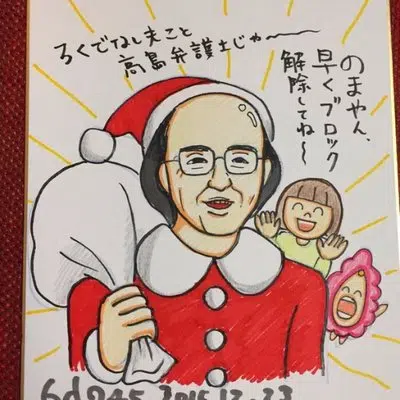 ろくでなし夫こと
高島弁護士じゃ〜
のまやん、
早くブロック
解除してね〜
6d745 2015.12.23